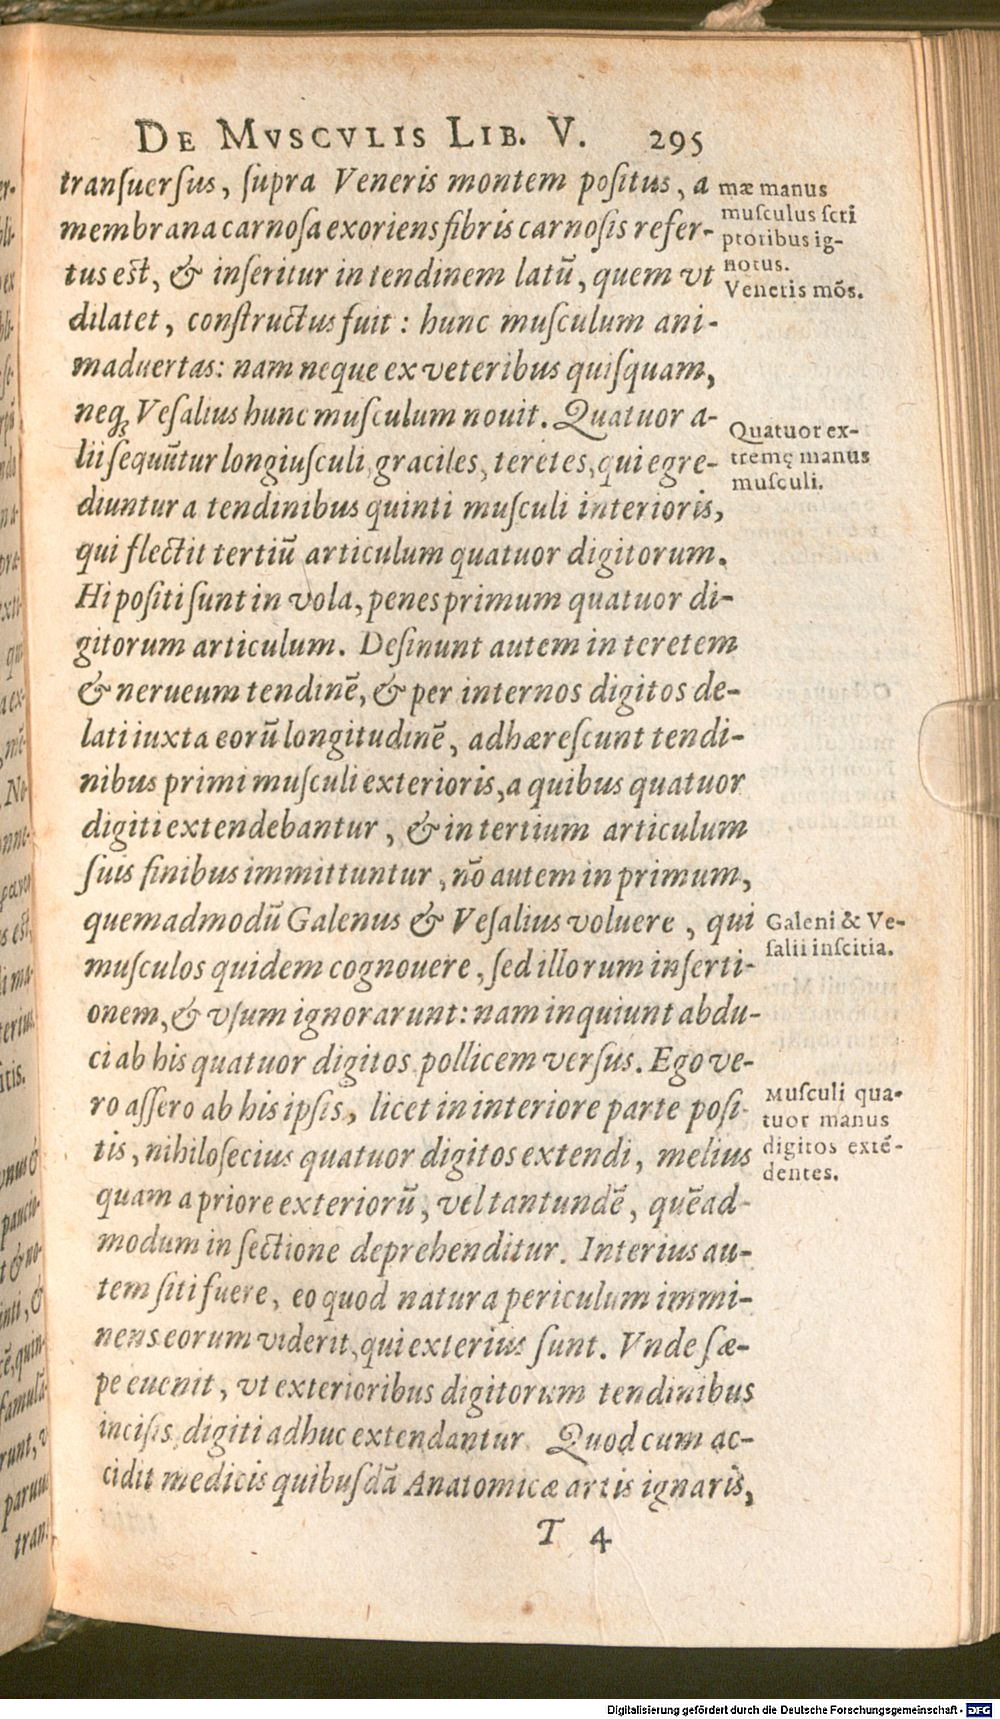 DE MVSCVLIS LIB. V. 295
tranſuerſus, ſupra Veneris montem poſitus, a
membrana carnoſa exoriens fibris carnoſis refer-
tus est, & inſeritur in tendinem latū, quem vt
dilatet, conſtructus fuit: hunc muſculum ani-
maduertas: nam neque ex veteribus quiſquam,
neq; Veſalius hunc muſculum nouit. Quatuor a-
lii ſequūtur longiuſculi, graciles, teretes, qui egre-
diuntur a tendinibus quinti muſculi interioris,
qui flectit tertiū articulum quatuor digitorum.
Hi poſiti ſunt in vola, penes primum quatuor di-
gitorum articulum. Deſinunt autem in teretem
& nerueum tendinē, & per internos digitos de-
lati iuxta eorū longitudinē, adhæreſcunt tendi-
nibus primi muſculi exterioris, a quibus quatuor
digiti extendebantur, & in tertium articulum
ſuis finibus immittuntur, nō autem in primum,
quemadmodū Galenus & Veſalius voluere, qui
muſculos quidem cognouere, ſed illorum inſerti-
onem, & vſum ignorarunt: nam inquiunt abdu-
ci ab his quatuor digitos pollicem verſus. Ego ve-
ro aſſero ab his ipſis, licet in interiore parte poſi-
tis, nihiloſecius quatuor digitos extendi, melius
quam a priore exteriorū, vel tantundē, quēad-
modum in ſectione deprehenditur. Interius au-
tem ſiti fuere, eo quod natura periculum immi-
nens eorum viderit, qui exterius ſunt. Vnde ſæ-
pe euenit, vt exterioribus digitorum tendinibus
inciſis, digiti adhuc extendantur. Quod cum ac-
cidit medicis quibuſdā Anatomicæ artis ignaris,
T 4
mæ manus
muſculus ſcri
ptoribus ig-
notus.
Veneris mōs.
Quatuor ex-
tremę manus
muſculi.
Galeni & Ve-
ſalii inſcitia.
Muſculi qua-
tuor manus
digitos extē-
dentes.
Digitalisierung gefördert durch die Deutsche Forschungsgemeinschaft - DFG